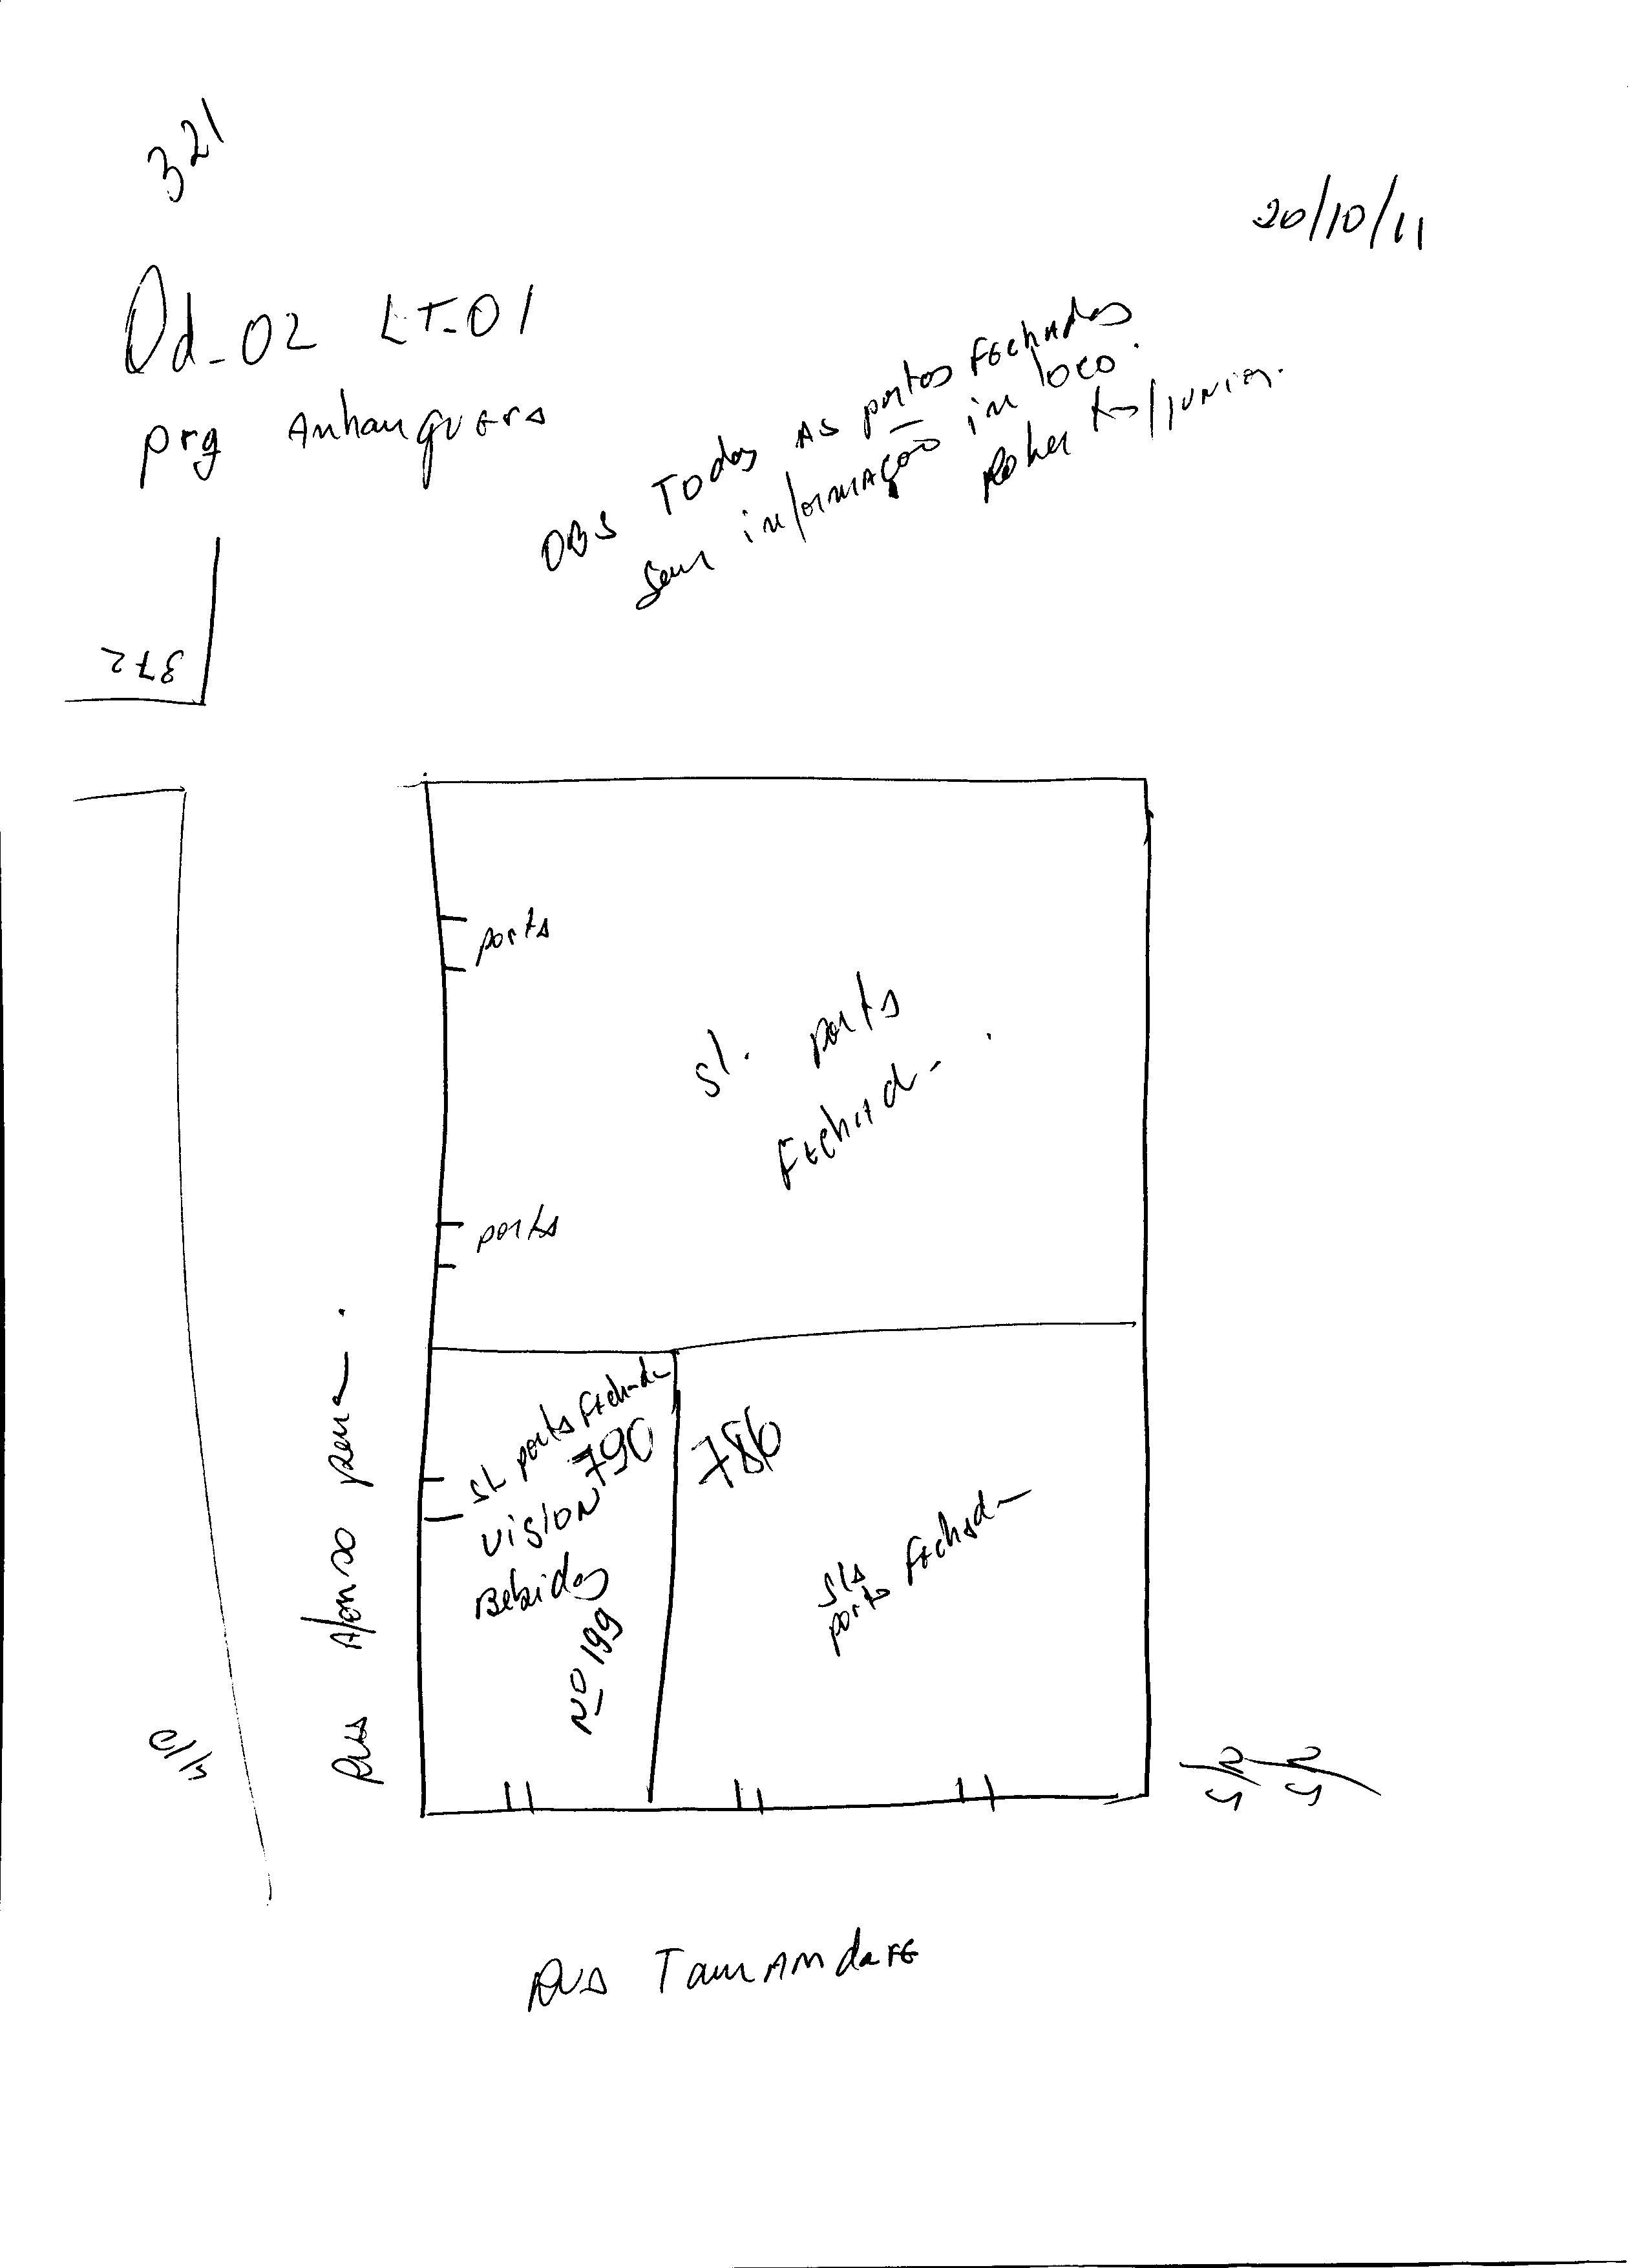 321
20/10/11
Qd-02 LT-01
prq Anhanguera
OBS Todas as portas fechadas
sem informação in loco.
/junior.
372
porta
sl. porta
fechad
porta
Rua Afonso pena.
sl porta fechada
790
786
vision
Bebidas
Nº 199
sls
porta fechada
Rua Tamandare